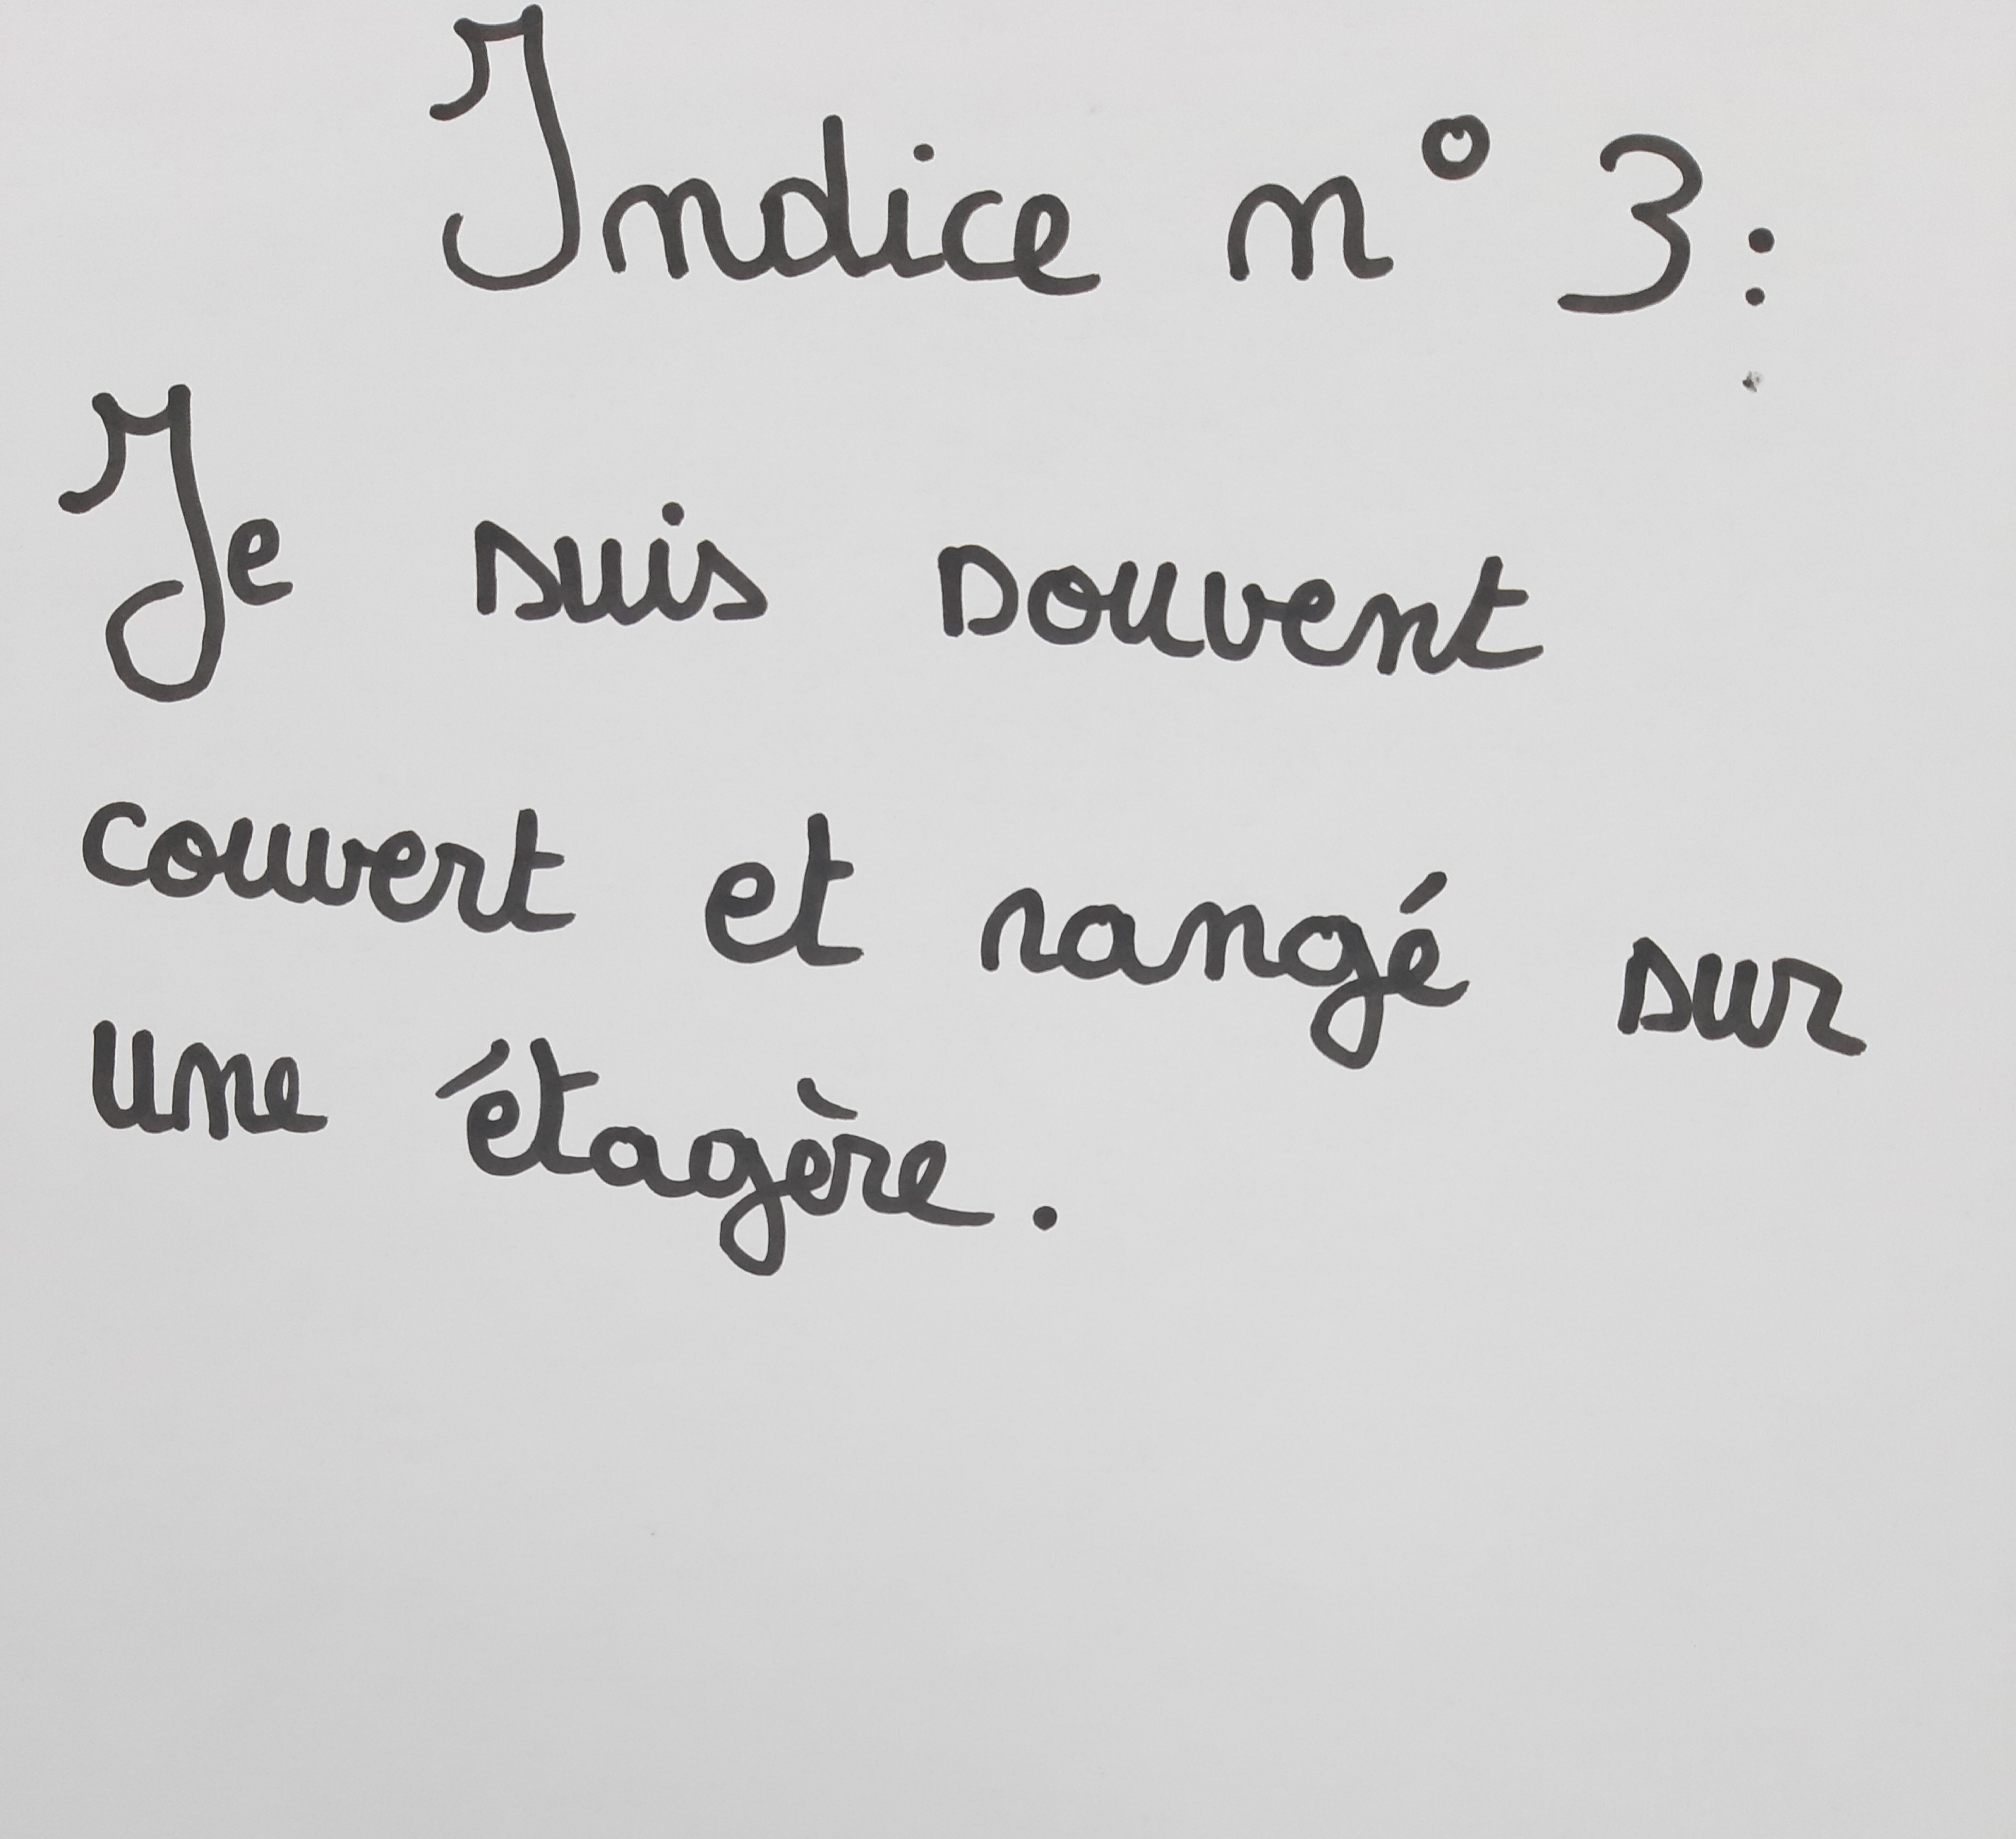 Indice n° 3:
Je suis souvent
couvert et rangé sur
une étagère.